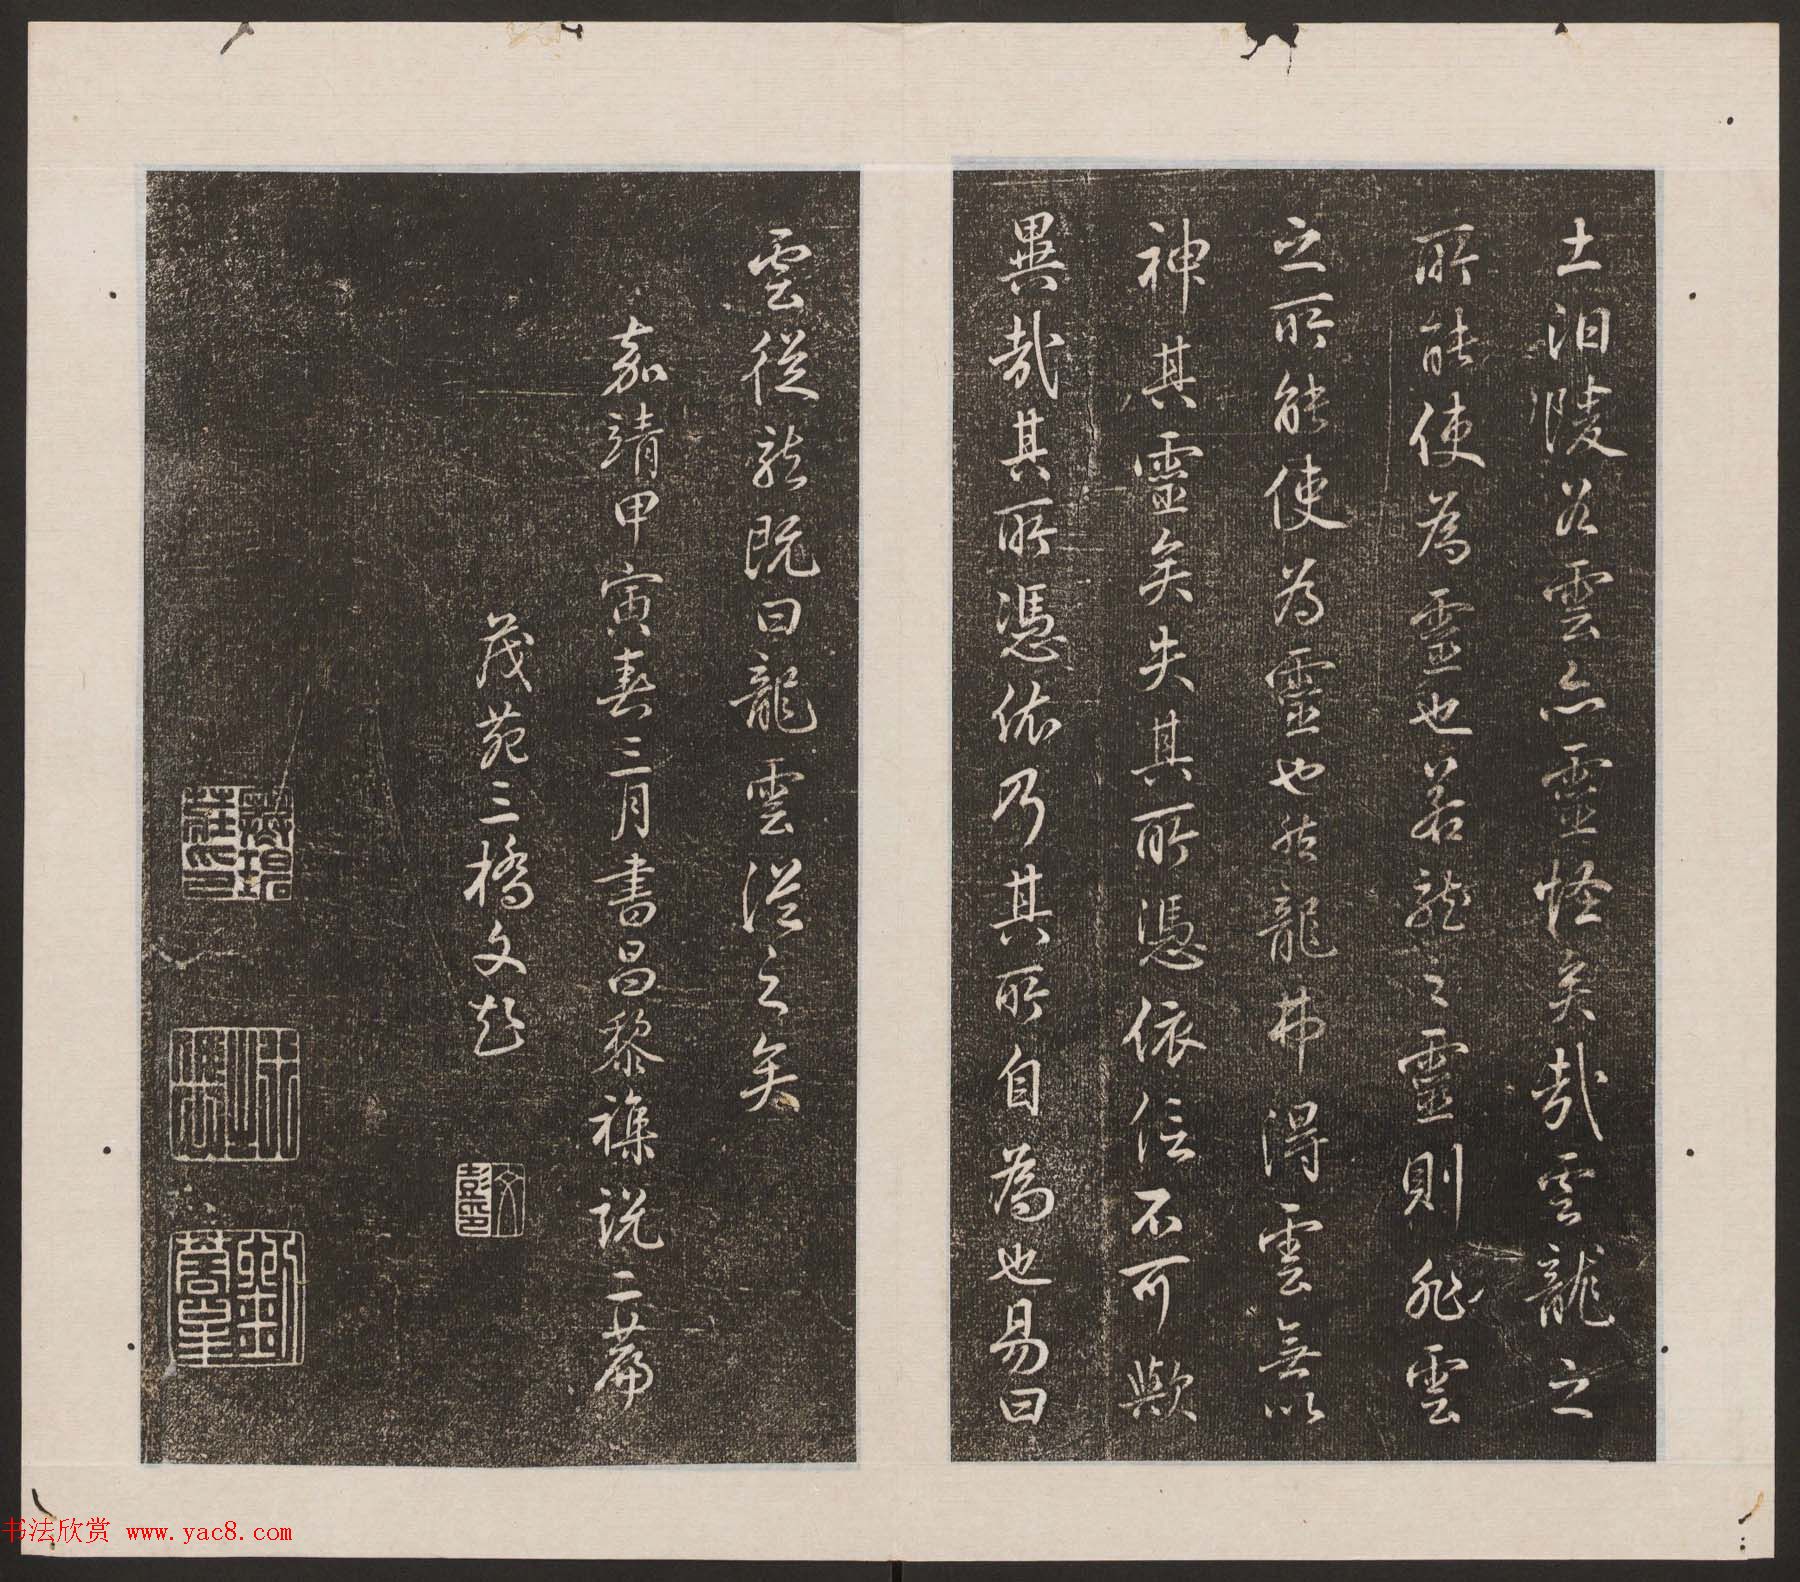 土汩陵谷雲亦靈怪矣哉雲龍之
所能使為靈也若龍之靈則非雲
之所能使為靈也然龍弗得雲無以
神其靈矣失其所憑依信不可歟
異哉其所憑依乃其所自為也易曰
雲從龍既曰龍雲從之矣
嘉靖甲寅春三月書昌黎襍說二篇
茂苑三橋文彭
文彭印
书法欣赏 www.yac8.com